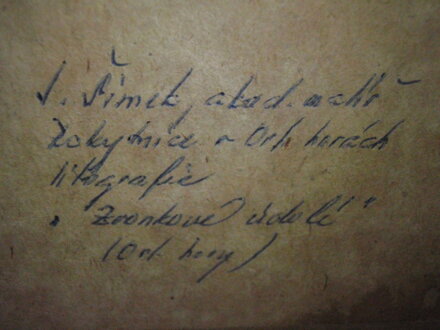 J. Šimek, akad. malíř
Rokytnice v Orl. horách
litografie
„Zvonkové údolí"
(Orl. hory)